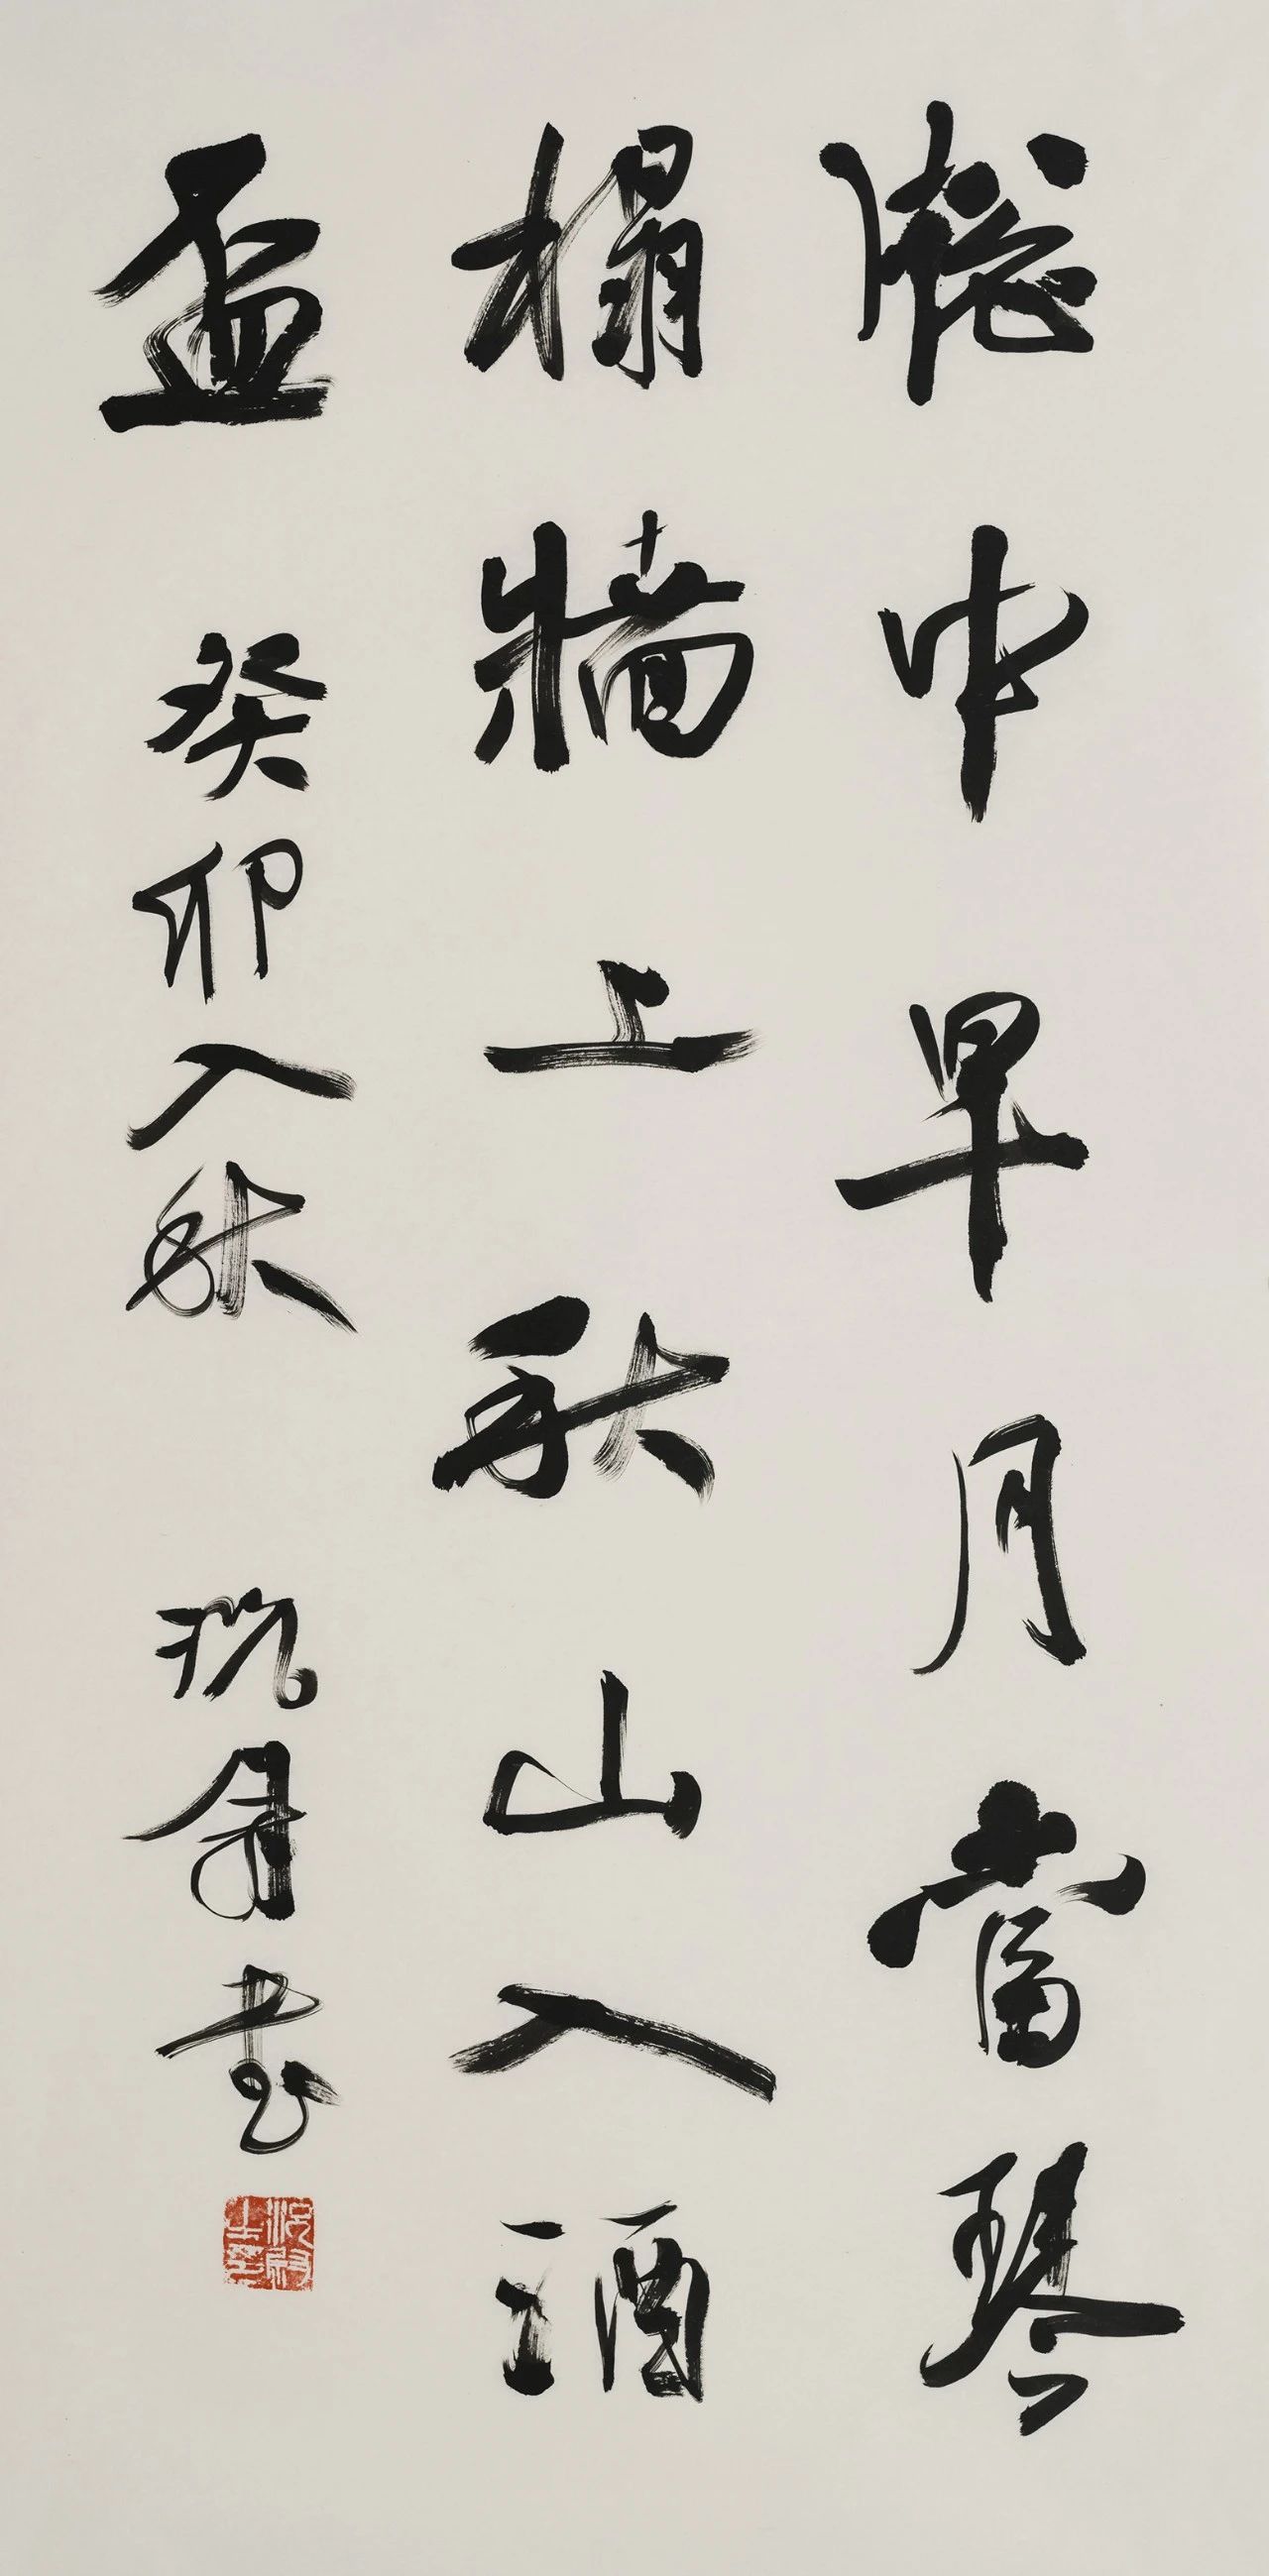 牕中早月當琴
榻牆上秋山入酒
盃 癸卯入秋 書